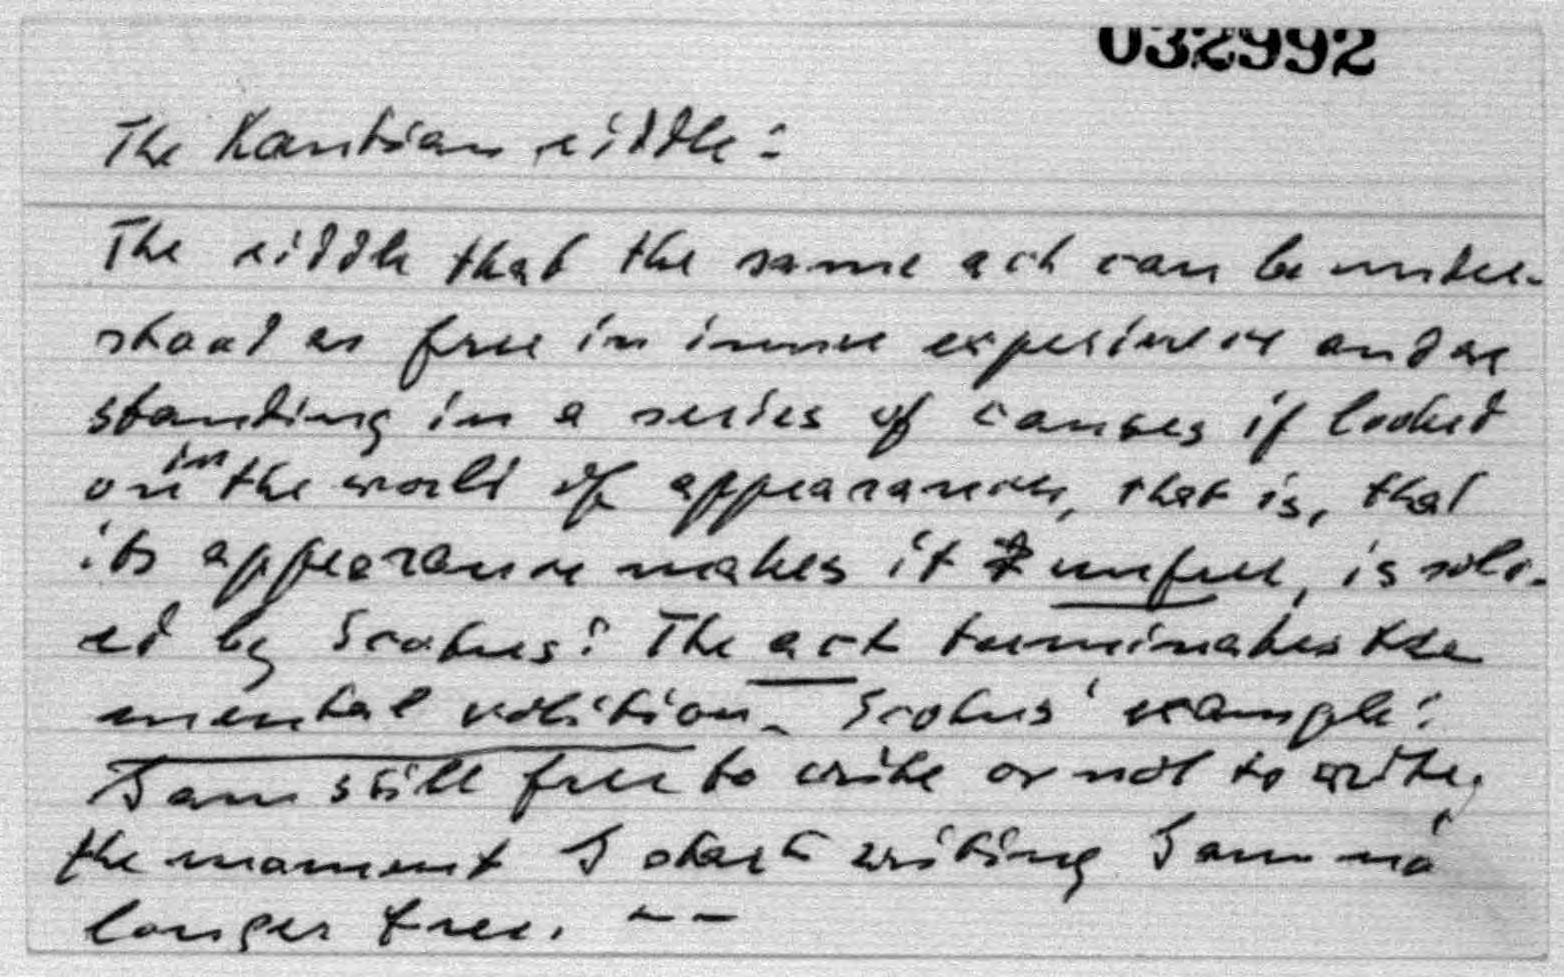 032992
The Kantian riddle:
The riddle that the same act can be under-
stood as free in inner experience and as
standing in a series of causes if looked
in
on the world of appearances, that is, that
its appearance makes it unfree, is solv-
ed by Scotus: The act terminates the
mental volition. Scotus' example:
I am still free to write or not to write,
the moment I start writing I am no
longer free. --